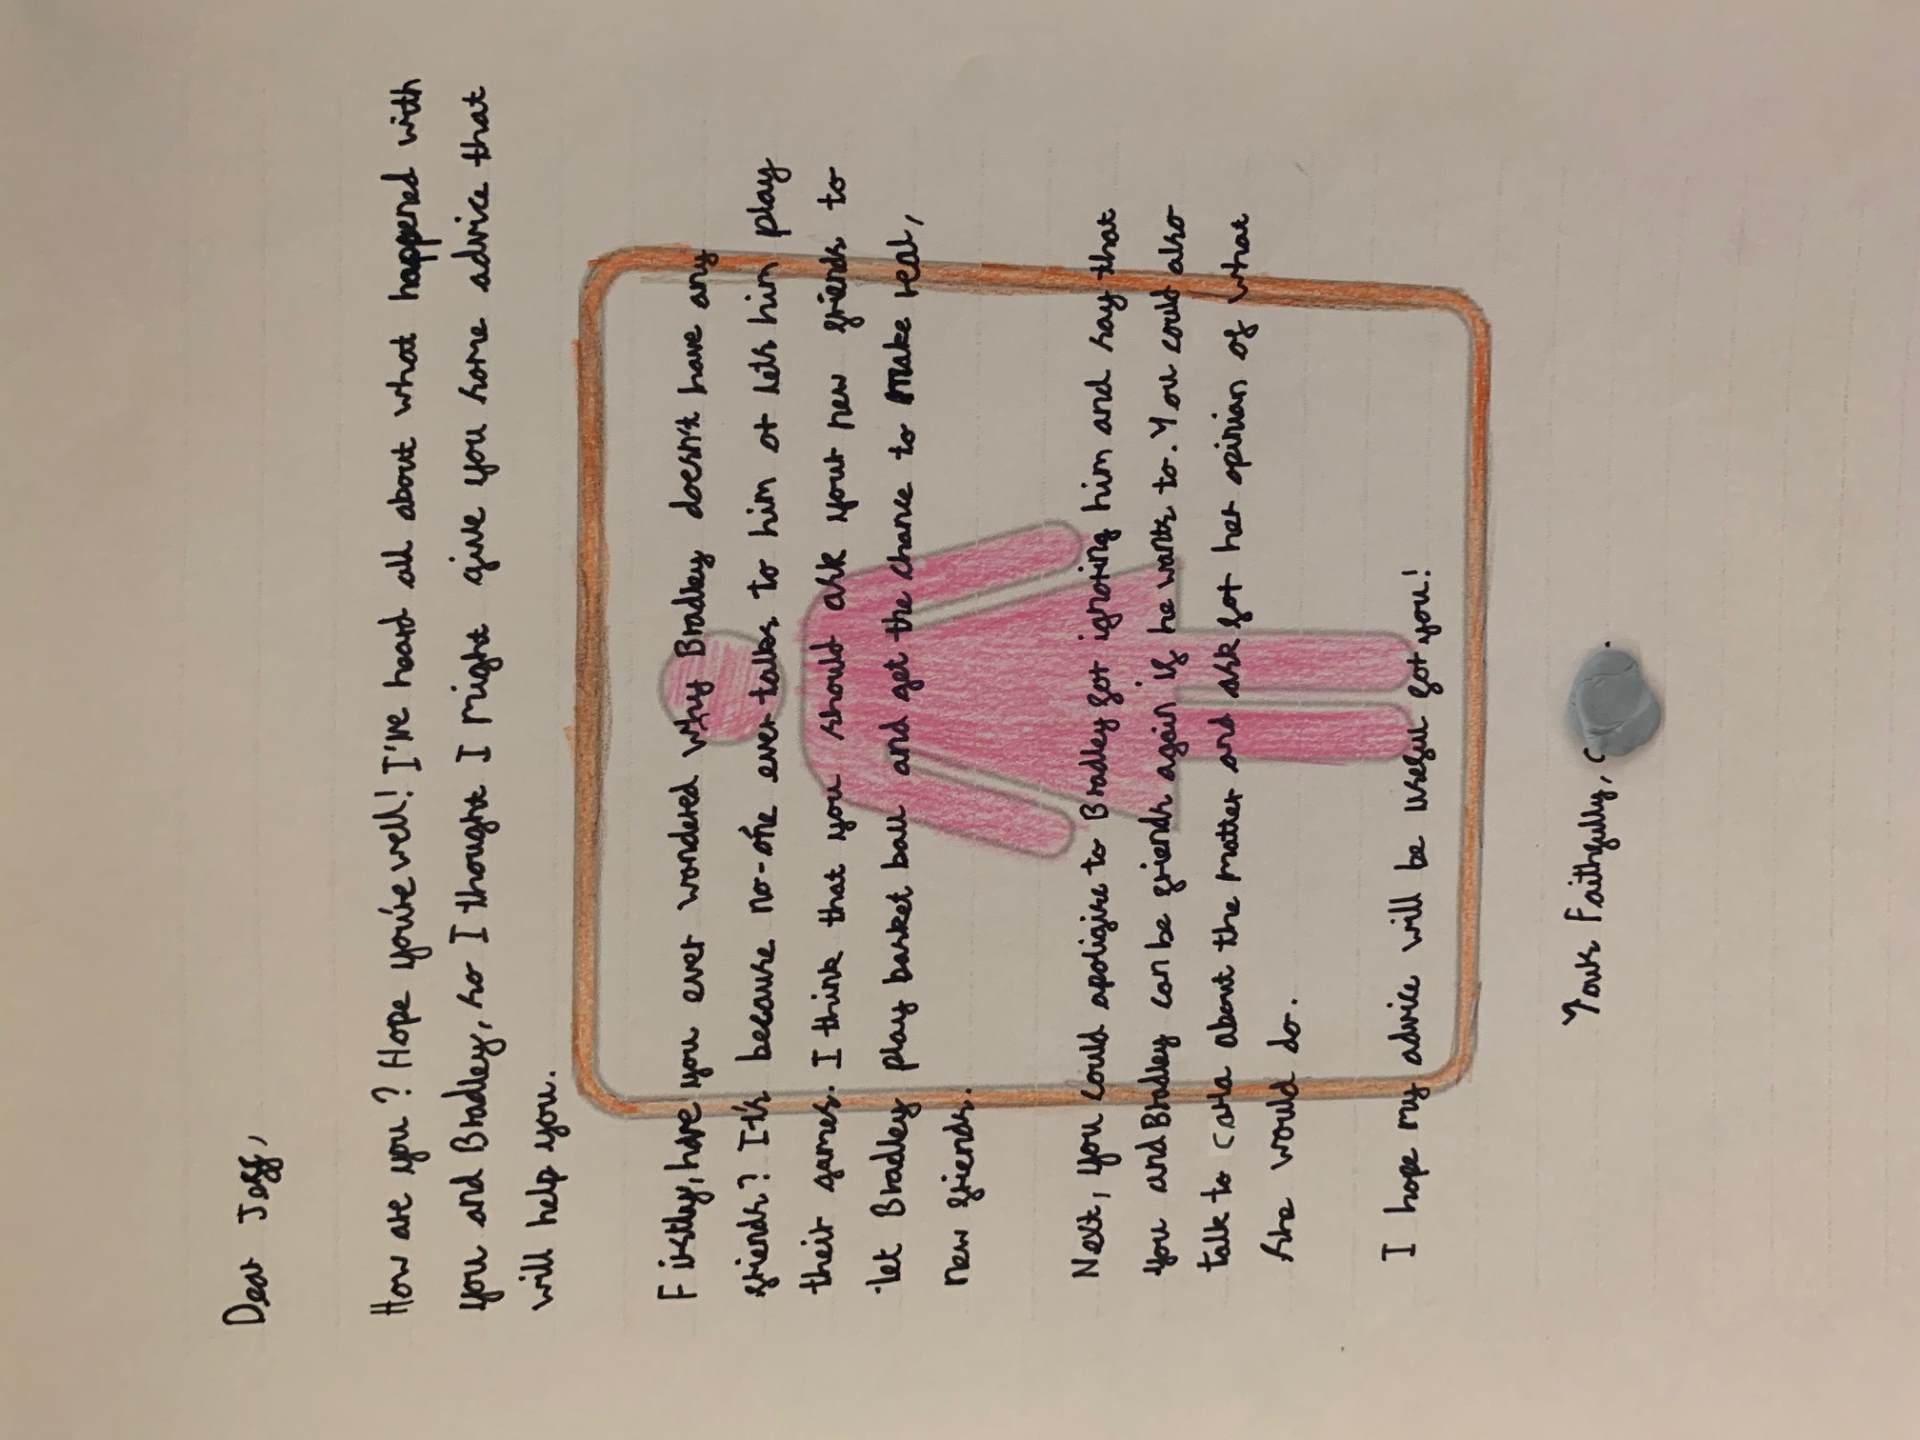 Dear Jeff,
How are you? Hope you're well! I've heard all about what happened with
you and Bradley, so I thought I might give you some advice that
will help you.
Firstly, have you ever wondered why Bradley doesn't have any
friends? It's because no-one ever talks to him or lets him play
their games. I think that you should ask your new friends to
let Bradley play basket ball and get the chance to make real,
new friends.
Next, you could apoligise to Bradley for ignoring him and say that
you and Bradley can be friends again if he wants to. You could also
talk to Carla about the matter and ask for her opinian of what
she would do.
I hope my advice will be useful for you!
Yours Faithfully,